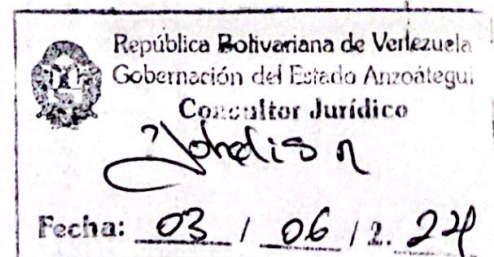 República Bolivariana de Venezuela
Gobernación del Estado Anzoátegui
Consultor Jurídico
Fecha: 03 / 06 / 2. 24